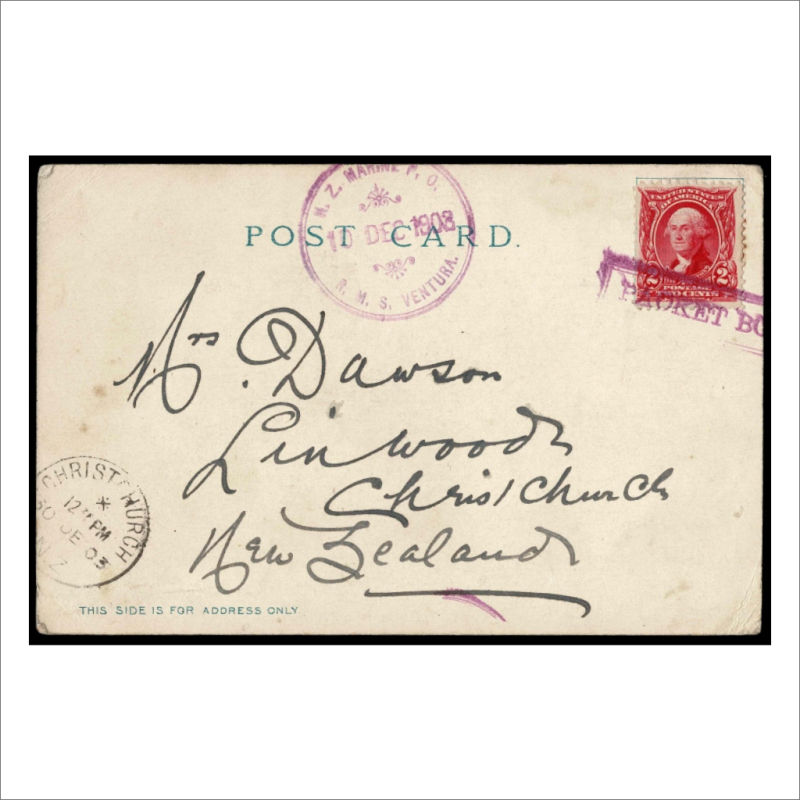 N. Z. MARINE P. O.
10 DEC 1903
R. M. S. VENTURA.
POST CARD.
UNITED STATES
OF AMERICA
2 2
POSTAGE
TWO CENTS
PACKET BO
Mrs. Dawson
Linwood
Christchurch
New Zealand
CHRISTCHURCH
12 PM
30 DE 03
N.Z
THIS SIDE IS FOR ADDRESS ONLY